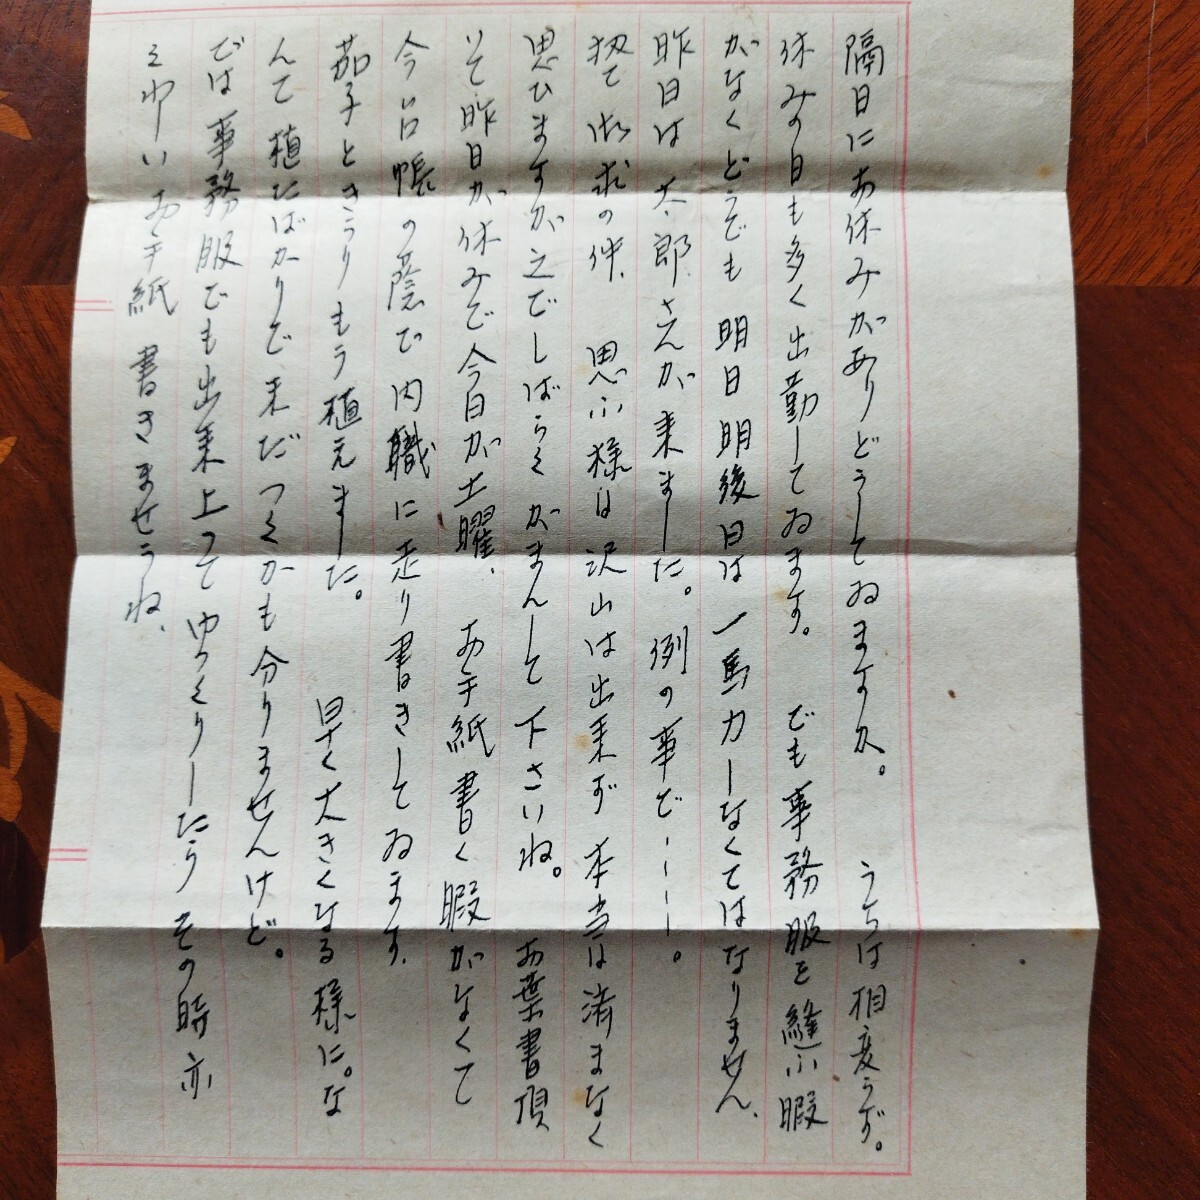 隔日にお休みがありどうしてゐますか。 うちは相変らず。
休みの日も多く出勤してゐます。 でも事務服を縫ふ暇
がなくどうでも明日明後日は一馬力しなくてはなりません、
昨日は太郎さんが来ました。例の事で――――。
扨て御求の件、思ふ様は沢山は出来ず本当は済まなく
思ひますが之でしばらくがまんして下さいね。 お葉書頂
いて昨日が休みで今日が土曜、お手紙書く暇がなくて
今台帳の蔭で内職に走り書きしてゐます、
茄子ときうりもう植えました。 早く大きくなる様に。な
んて植たばかりで未だつくかも分りませんけど。
では事務服でも出来上つてゆつくりしたら その時亦
くわしいお手紙書きませうね、